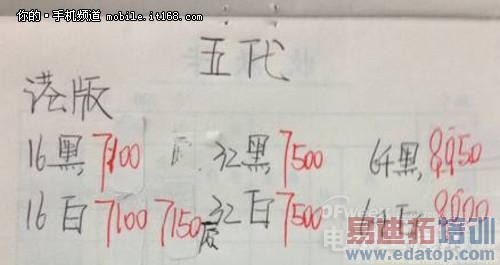 你的·手机频道 mobile.it168.com
五代
港版
16黑 7100 32黑 7500 64黑 8050
16白 7100 7150 32白 7500 64白
易迪拓培训
www.edatop.com